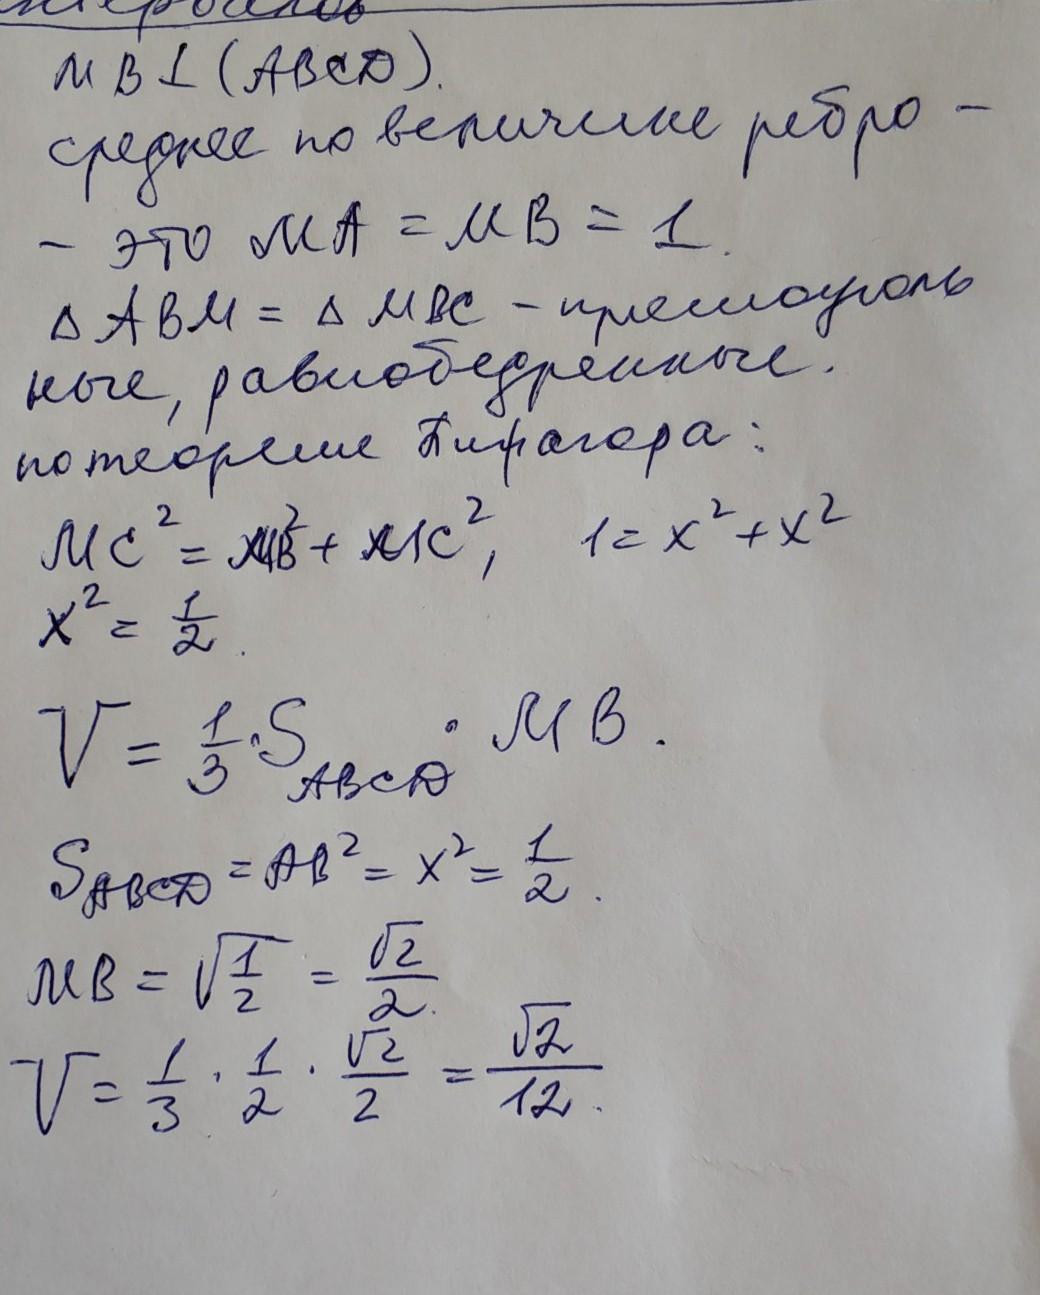 интервалов
MB⊥(ABCD).
среднее по величине ребро –
– это MA = MB = 1.
△ABM = △MBC – прямоуголь
ные, равнобедренные.
по теореме Пифагора:
MC² = MB² + MC², 1 = x² + x²
x² = 1/2.
V = 1/3 · S_ABCD · MB.
S_ABCD = AB² = x² = 1/2.
MB = √(1/2) = √2/2.
V = 1/3 · 1/2 · √2/2 = √2/12.